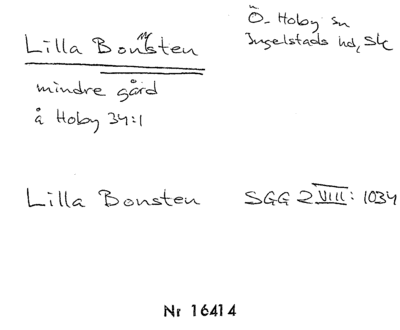 Ö. Hoby sn
Ingelstads hd, Sk
Lilla Bonsten
mindre gård
å Hoby 34:1
Lilla Bonsten SGG 2 VIII: 1034
Nr 16414